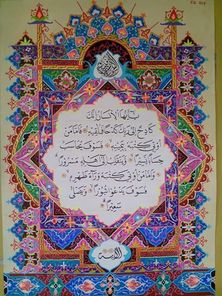 يَٰٓأَيُّهَا ٱلْإِنسَٰنُ إِنَّكَ
كَادِحٌ إِلَىٰ رَبِّكَ كَدْحًا فَمُلَٰقِيهِ فَأَمَّا مَنْ
أُوتِىَ كِتَٰبَهُۥ بِيَمِينِهِۦ فَسَوْفَ يُحَاسَبُ
حِسَابًا يَسِيرًا وَيَنقَلِبُ إِلَىٰٓ أَهْلِهِۦ مَسْرُورًا
وَأَمَّا مَنْ أُوتِىَ كِتَٰبَهُۥ وَرَآءَ ظَهْرِهِۦ
فَسَوْفَ يَدْعُوا۟ ثُبُورًا وَيَصْلَىٰ
سَعِيرًا